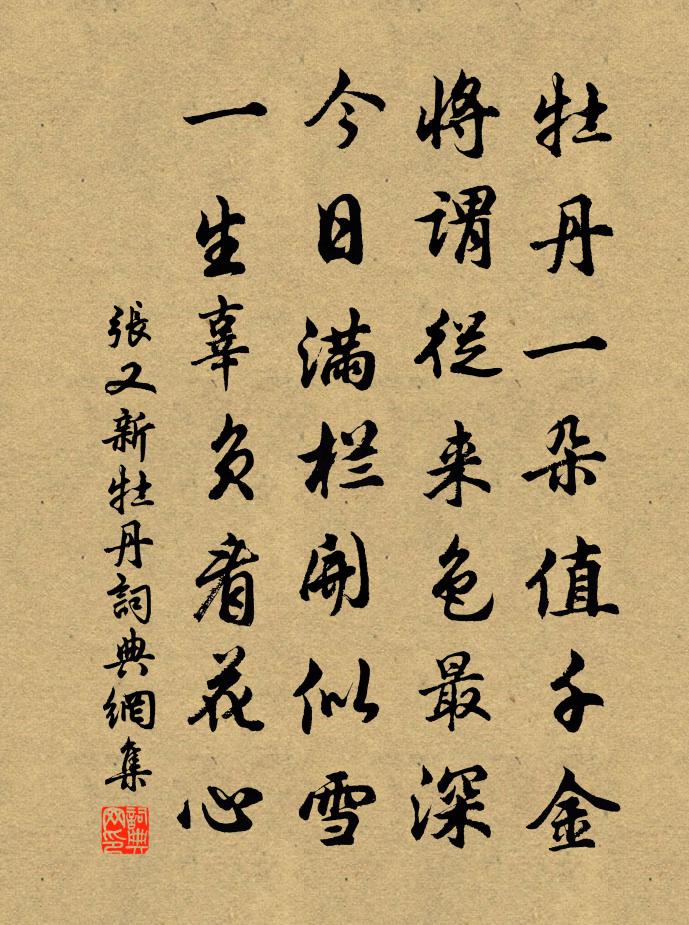 牡丹一朵值千金
將谓從来色最深
今日滿栏開似雪
一生辜负看花心
張又新牡丹詞典網集
詞典網印